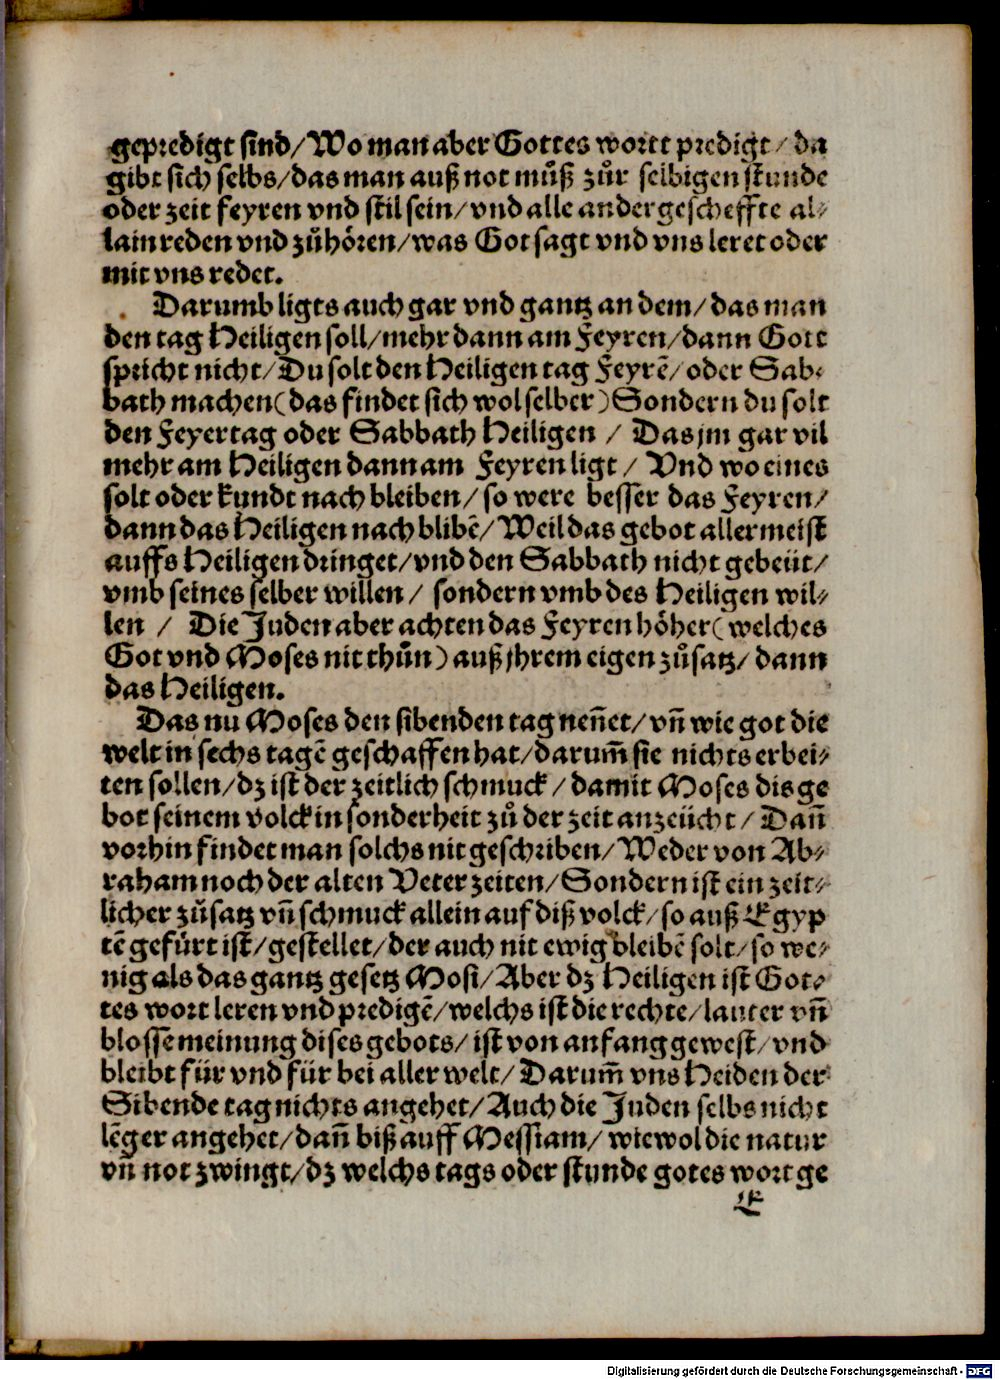 gepredigt sind/Wo man aber Gottes wortt predigt/ da
gibt sich selbs/das man auß not můß zůr selbigen stunde
oder zeit feyren vnd stil sein/vnd alle ander gescheffte al⸗
lain reden vnd zůhören/was Got sagt vnd vns leret oder
mit vns redet.
Darumb ligts auch gar vnd gantz an dem/das man
den tag Heiligen soll/mehr dann am Feyren/dann Gott
spricht nicht/Du solt den Heiligen tag Feyrē/oder Sab⸗
bath machen(das findet sich wol selber)Sondern du solt
den Feyertag oder Sabbath Heiligen / Das jm gar vil
mehr am Heiligen dann am Feyren ligt / Vnd wo eines
solt oder kundt nach bleiben/so were besser das Feyren/
dann das Heiligen nach blibē/Weil das gebot allermeist
auffs Heiligen dringet/vnd den Sabbath nicht gebeüt/
vmb seines selber willen / sondern vmb des Heiligen wil⸗
len / Die Juden aber achten das Feyren höher(welches
Got vnd Moses nit thůn)auß jhrem eigen zůsatz/dann
das Heiligen.
Das nu Moses den sibenden tag nen̄et/vn̄ wie got die
welt in sechs tagē geschaffen hat/darum̄ sie nichts erbei⸗
ten sollen/dz ist der zeitlich schmuck / damit Moses dis ge
bot seinem volck in sonderheit zů der zeit anzeücht / Dan̄
vorhin findet man solchs nit geschriben/Weder von Ab⸗
raham noch der alten Veter zeiten/Sondern ist ein zeit⸗
licher zůsatz vn̄ schmuck allein auf diß volck/so auß Egyp
tē gefürt ist/gestellet/der auch nit ewig bleibē solt/so we⸗
nig als das gantz gesetz Mosi/Aber dz Heiligen ist Got⸗
tes wort leren vnd predigē/welchs ist die rechte/lauter vn̄
blosse meinung dises gebots/ist von anfang gewest/vnd
bleibt für vnd für bei aller welt/Darum̄ vns Heiden der
Sibende tag nichts angehet/Auch die Juden selbs nicht
lēger angehet/dan̄ biß auff Messiam/wiewol die natur
vn̄ not zwingt/dz welchs tags oder stunde gotes wort ge
E
Digitalisierung gefördert durch die Deutsche Forschungsgemeinschaft - DFG